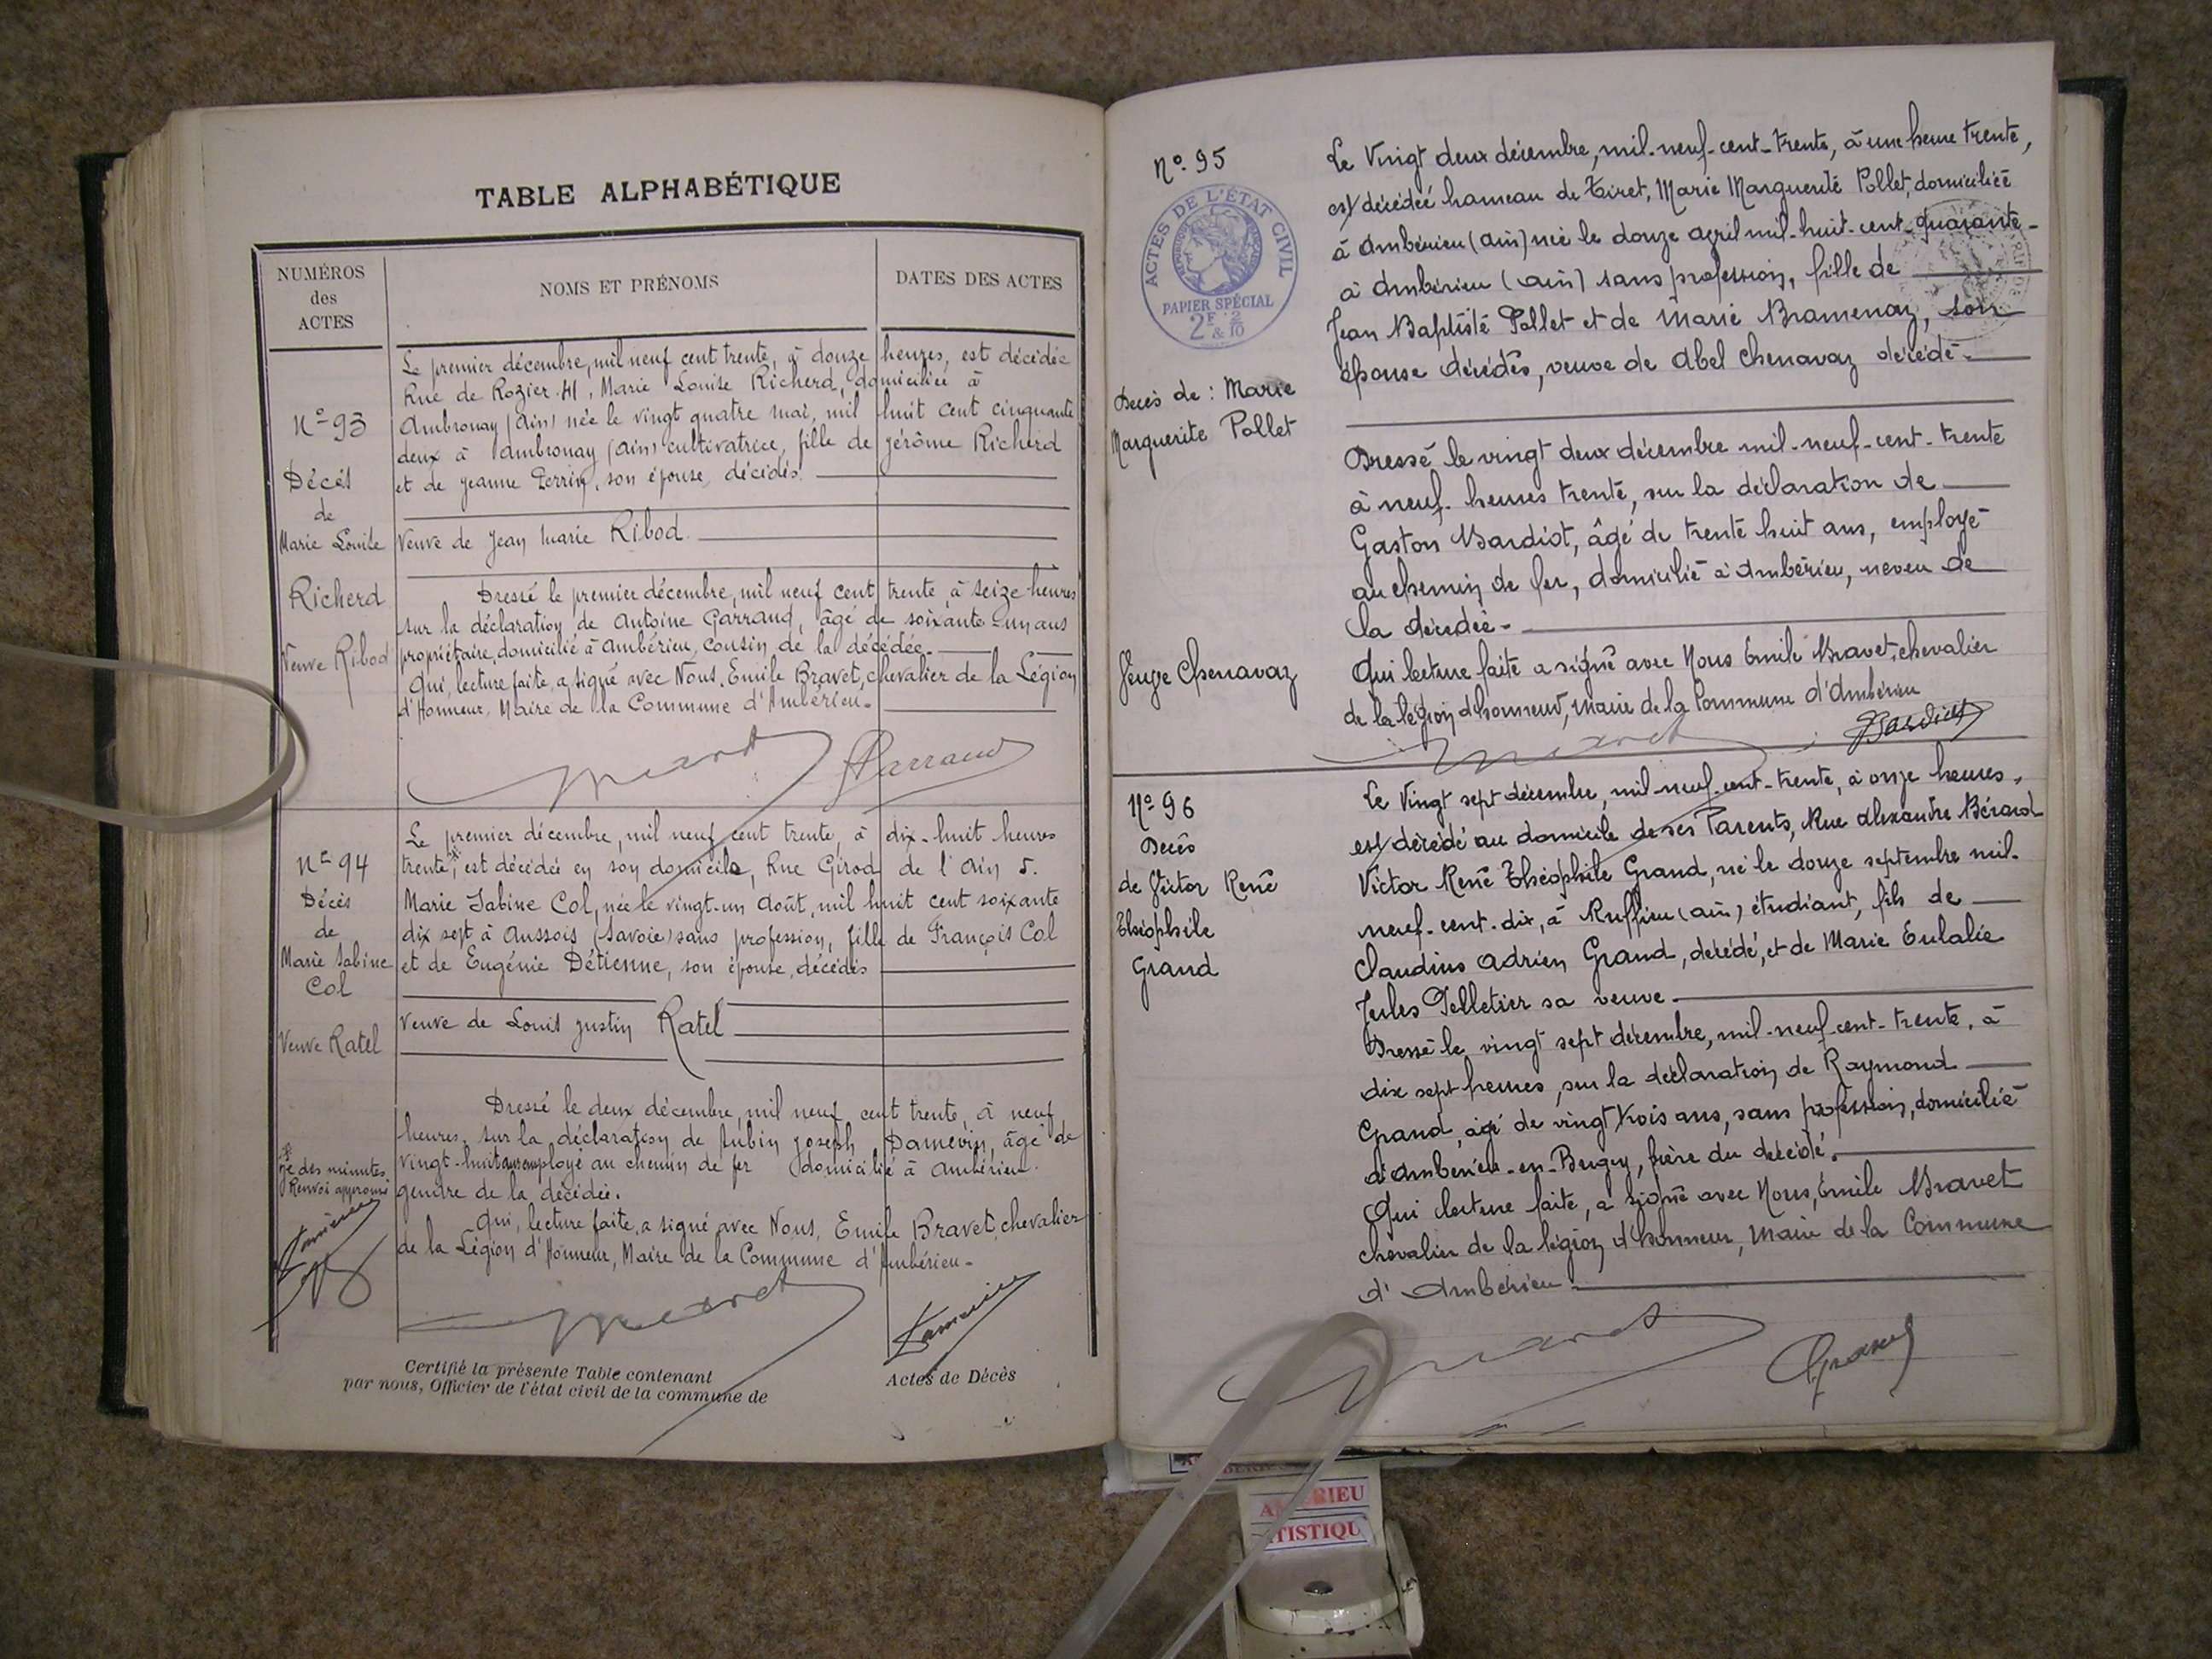 TABLE ALPHABÉTIQUE
NUMÉROS
des
ACTES
NOMS ET PRÉNOMS
DATES DES ACTES
N° 93
Décès
de
Marie Louise
Richerd
Veuve Ribod
Le premier décembre, mil neuf cent trente, à douze heures, est décédée
Rue de Rozier 41, Marie Louise Richerd, domiciliée à
Ambronay (Ain) née le vingt quatre mai, mil huit cent cinquante
deux à Ambronay (Ain) cultivatrice, fille de Jérôme Richerd
et de Jeanne Perrin, son épouse, décédés.
Veuve de Jean Marie Ribod.
Dressé le premier décembre, mil neuf cent trente, à seize heures
sur la déclaration de Antoine Garraud, âgé de soixante-un ans
propriétaire, domicilié à Ambérieu, cousin de la décédée.
Qui, lecture faite, a signé avec Nous, Emile Bravet, chevalier de la Légion
d'Honneur, Maire de la Commune d'Ambérieu.
Garraud
N° 94
Décès
de
Marie Sabine
Col
Veuve Ratel
Le premier décembre, mil neuf cent trente, à dix-huit heures
trente, est décédée en son domicile, Rue Girod de l'Ain 5.
Marie Sabine Col, née le vingt-un Août, mil huit cent soixante
dix sept à Aussois (Savoie) sans profession, fille de François Col
et de Eugénie Détienne, son épouse, décédés
Veuve de Louis Justin Ratel
Dressé le deux décembre, mil neuf cent trente, à neuf
heures, sur la déclaration de Aubin Joseph Damevin, âgé de
vingt-huit ans employé au chemin de fer domicilié à Ambérieu.
gendre de la décédée.
Qui, lecture faite, a signé avec Nous, Emile Bravet, chevalier
de la Légion d'Honneur, Maire de la Commune d'Ambérieu.
des minutes
Renvoi approuvé
Certifié la présente Table contenant
par nous, Officier de l'état civil de la commune de
Actes de Décès
N° 95
ACTES DE L'ÉTAT CIVIL
PAPIER SPÉCIAL
2F & 2/10
Décès de : Marie
Marguerite Pollet
Veuve Chenavaz
Le Vingt deux décembre, mil-neuf-cent-trente, à une heure trente,
est décédée hameau de Tiret, Marie Marguerite Pollet, domiciliée
à Ambérieu (Ain) née le douze avril mil-huit-cent-quarante-
à Ambérieu (Ain) sans profession, fille de
Jean Baptiste Pollet et de Marie Bramenoz, son
épouse décédés, veuve de Abel Chenavaz décédé.
Dressé le vingt deux décembre mil-neuf-cent-trente
à neuf-heures trente, sur la déclaration de
Gaston Bardiot, âgé de trente huit ans, employé
au chemin de fer, domicilié à Ambérieu, neveu de
la décédée.
Qui lecture faite a signé avec Nous Emile Bravet, chevalier
de la légion d'honneur, Maire de la Commune d'Ambérieu
N° 96
Décès
de Victor René
Théophile
Grand
Le Vingt sept décembre, mil-neuf-cent-trente, à onze heures,
est décédé au domicile de ses Parents, Rue Alexandre Bérard
Victor René Théophile Grand, né le douze septembre mil-
neuf-cent-dix, à Ruffieu (Ain) étudiant, fils de
Claudius Adrien Grand, décédé, et de Marie Eulalie
Jules Pelletier sa veuve.
Dressé le vingt sept décembre, mil-neuf-cent-trente, à
dix sept heures, sur la déclaration de Raymond
Grand, âgé de vingt trois ans, sans profession, domicilié
à Ambérieu-en-Bugey, frère du décédé.
Qui lecture faite, a signé avec Nous, Emile Bravet
chevalier de la légion d'honneur, Maire de la Commune
d'Ambérieu
Grand